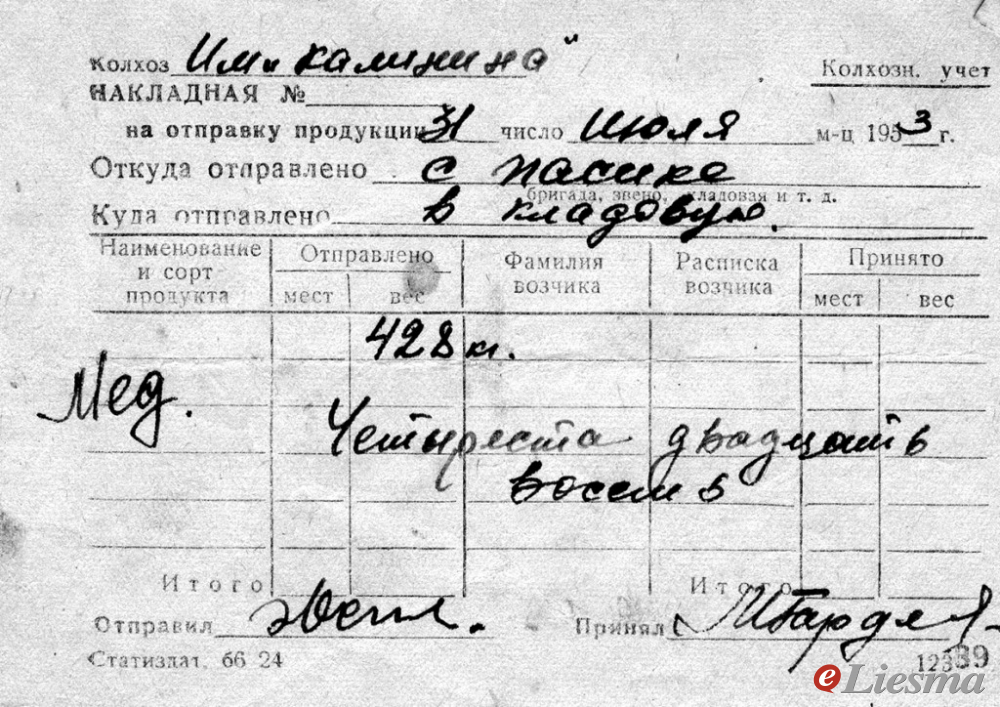 Колхоз Им. Калинина"
Колхозн. учет
НАКЛАДНАЯ №
на отправку продукции 31 число Июля м-ц 1953 г.
Откуда отправлено с пасике
бригада, звено, кладовая и т. д.
Куда отправлено в кладовую.
Наименование и сорт продукта
Отправлено
мест вес
Фамилия возчика
Расписка возчика
Принято
мест вес
428 кг.
Мед.
Четыреста двадцать
восемь
Итого Итого
Отправил
Принял
Статиздат. 66 24
eLiesma